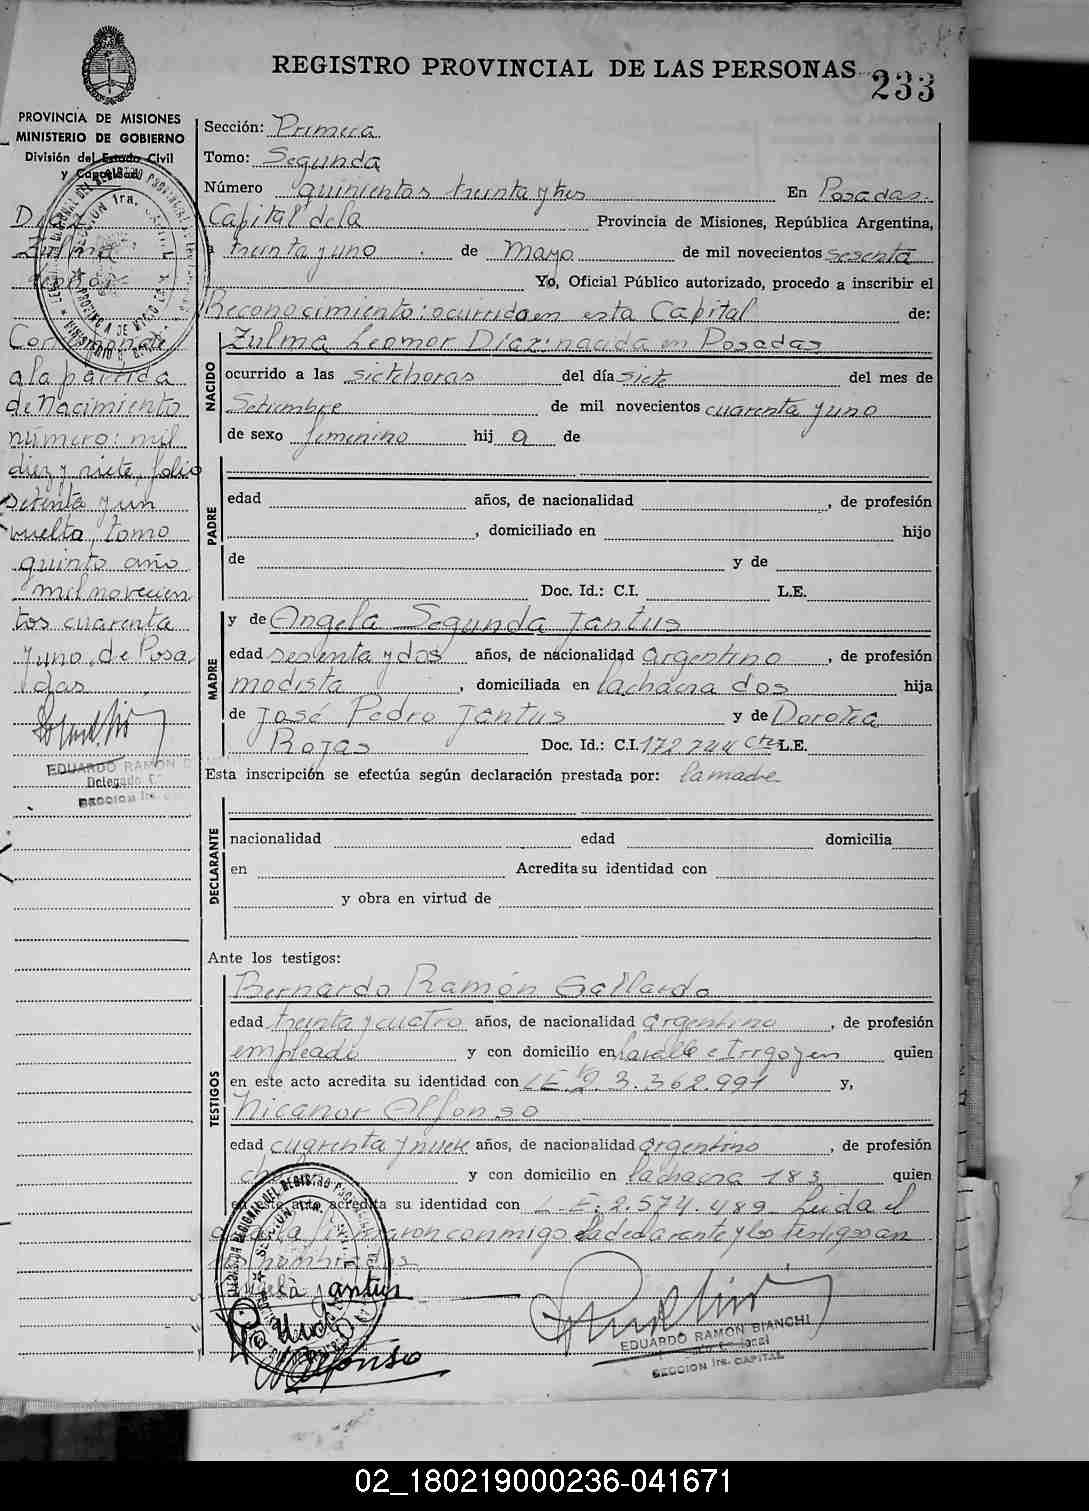 REGISTRO PROVINCIAL DE LAS PERSONAS
233
PROVINCIA DE MISIONES
MINISTERIO DE GOBIERNO
División del Estado Civil
y Capacidad
Diaz
Zulma
Leonor
Corresponde
a la partida
de Nacimiento
número: mil
diez y siete, folio
setenta y un
vuelta, tomo
quinto año
mil novecien
tos cuarenta
y uno, de Posa
das
EDUARDO RAMON
Delegado
SECCION 1ra.
Sección: Primera
Tomo: Segunda
Número quinientos treinta y tres En Posadas
Capital de la Provincia de Misiones, República Argentina,
a treinta y uno de Mayo de mil novecientos sesenta
Yo, Oficial Público autorizado, procedo a inscribir el
Reconocimiento: ocurrido en esta Capital de:
NACIDO
Zulma Leonor Díaz: nacida en Posadas
ocurrido a las siete horas del día siete del mes de
Setiembre de mil novecientos cuarenta y uno
de sexo femenino hij a de
PADRE
edad años, de nacionalidad , de profesión
, domiciliado en hijo
de y de
Doc. Id.: C.I. L.E.
MADRE
y de Angela Segunda Jantus
edad sesenta y dos años, de nacionalidad argentino , de profesión
modista , domiciliada en la chacra dos hija
de José Pedro Jantus y de Dorotea
Rojas Doc. Id.: C.I. 172744 L.E.
Esta inscripción se efectúa según declaración prestada por: la madre
DECLARANTE
nacionalidad edad domicilia
en Acredita su identidad con
y obra en virtud de
Ante los testigos:
TESTIGOS
Bernardo Ramón Gallardo
edad treinta y cuatro años, de nacionalidad argentino , de profesión
empleado y con domicilio en Lavalle e Irigoyen quien
en este acto acredita su identidad con LE 3.362.991 y,
Nicanor Alfonso
edad cuarenta y nueve años, de nacionalidad argentino , de profesión
y con domicilio en la chacra 183 quien
en este acto acredita su identidad con L.E. 2.574.489 Leida el
acta la firmaron conmigo la declarante y los testigos an
tes nombrados
Angela Jantus
Alfonso
EDUARDO RAMON BIANCHI
SECCION 1ra. CAPITAL
02_180219000236-041671